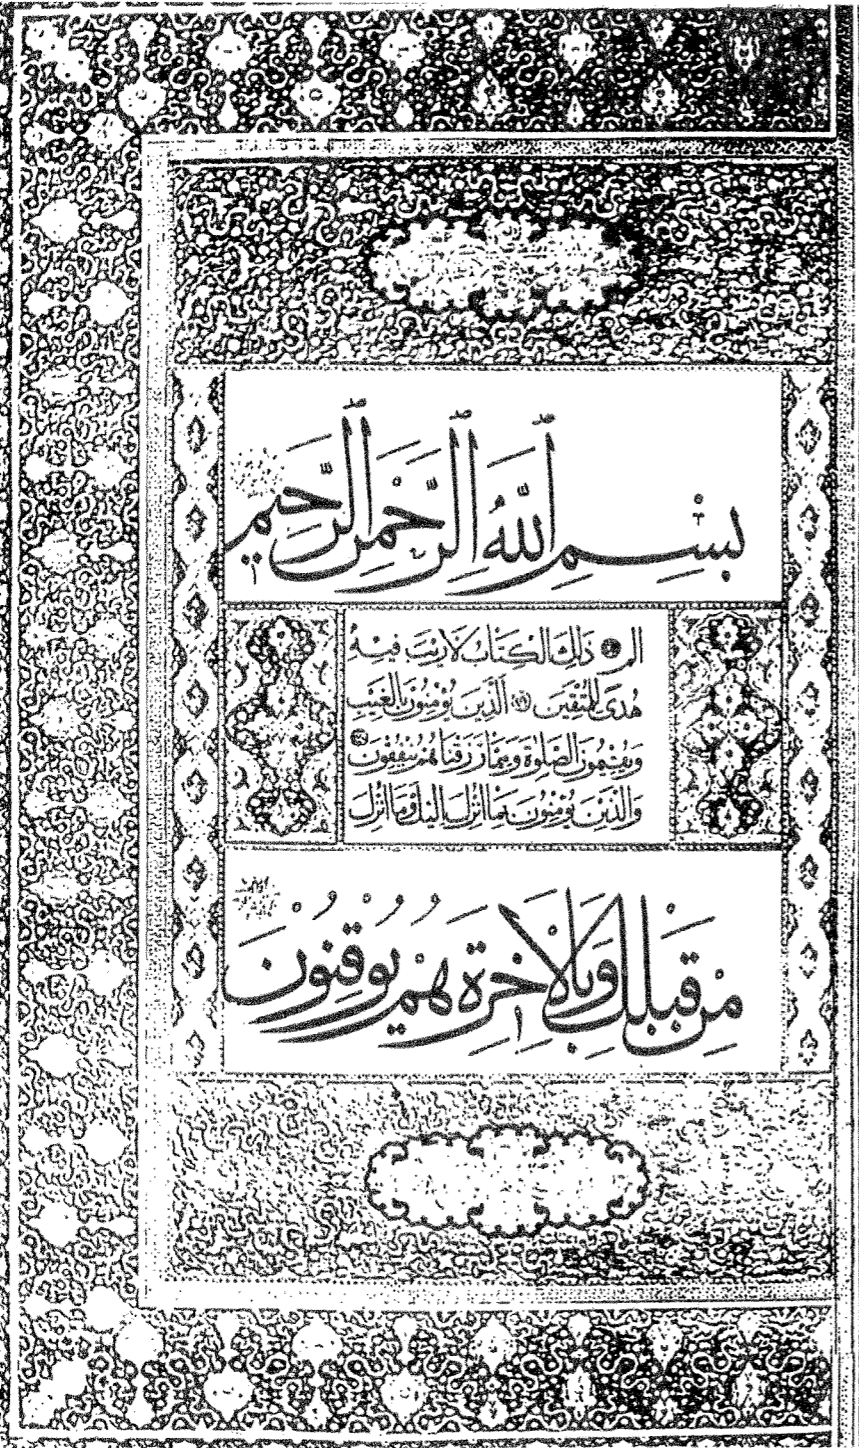 بِسْمِ اللَّهِ الرَّحْمٰنِ الرَّحِيمِ
الم ذٰلِكَ الْكِتَابُ لَا رَيْبَ فِيهِ
هُدًى لِلْمُتَّقِينَ الَّذِينَ يُؤْمِنُونَ بِالْغَيْبِ
وَيُقِيمُونَ الصَّلٰوةَ وَمِمَّا رَزَقْنَاهُمْ يُنْفِقُونَ
وَالَّذِينَ يُؤْمِنُونَ بِمَا أُنْزِلَ إِلَيْكَ وَمَا أُنْزِلَ
مِنْ قَبْلِكَ وَبِالْاٰخِرَةِ هُمْ يُوقِنُونَ